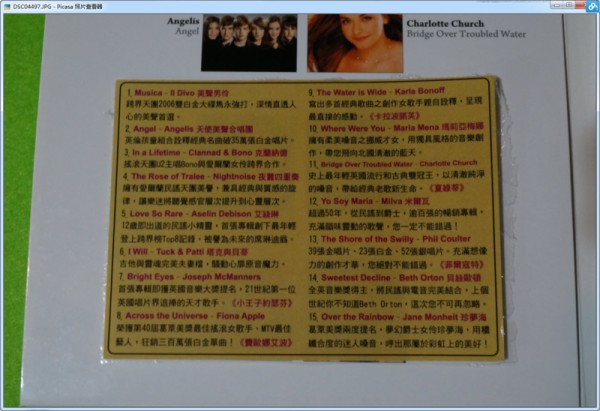 DSC04497.JPG - Picasa 照片查看器
Angelis
Angel
Charlotte Church
Bridge Over Troubled Water
1. Musica - Il Divo 美聲男伶
跨界天團2006雙白金大碟雋永強打，深情直透人
心的美聲首選。
2. Angel - Angelis 天使美聲合唱團
英倫孩童組合詮釋經典名曲破35萬張白金唱片。
3. In a Lifetime - Clannad & Bono 克蘭納德
搖滾天團U2主唱Bono與愛爾蘭女伶跨界合作。
4. The Rose of Tralee - Nightnoise 夜囂四重奏
擁有愛爾蘭民謠天團美譽，兼具經典與質感的旋
律，讓樂迷將聽覺感官層次提升到心靈層次。
5. Love So Rare - Aselin Debison 艾絲琳
12歲即出道的民謠小精靈，首張專輯創下最年輕
登上跨界榜Top8記錄，被譽為未來的席琳迪翁。
6. I Will - Tuck & Patti 塔克與貝蒂
吉他與靈魂完美夫妻檔，騷動心扉原音魔力。
7. Bright Eyes - Joseph McManners
首張專輯即獲英國音樂大獎提名，21世紀第一位
英國唱片界追捧的天才歌手。《小王子約瑟芬》
8. Across the Universe - Fiona Apple
榮獲第40屆葛萊美獎最佳搖滾女歌手、MTV最佳
藝人，狂銷三百萬張白金單曲！《費歐娜艾波》
9. The Water is Wide - Karla Bonoff
寫出多首經典歌曲之創作女歌手親自詮釋，呈現
最直接的感動。《卡拉波諾芙》
10. Where Were You - Maria Mena 瑪莉亞梅娜
擁有柔美嗓音之挪威才女，用獨具風格的音樂創
作，帶您飛向北國清澈的藍天。
11. Bridge Over Troubled Water - Charlotte Church
史上最年輕英國流行和古典雙冠王，以清澈純淨
的嗓音，帶給經典老歌新生命。《夏綠蒂》
12. Yo Soy Maria - Milva 米爾瓦
超過50年，從民謠到爵士，逾百張的暢銷專輯，
充滿韻味靈動的歌聲，您一定不能錯過！
13. The Shore of the Swilly - Phil Coulter
39張金唱片、23張白金、52張銀唱片、充滿想像
力的創作才華，您絕對不能錯過。《菲爾寇特》
14. Sweetest Decline - Beth Orton 貝絲歐頓
全英音樂獎得主，將民謠與電音完美結合，上個
世紀你不知道Beth Orton，這次您不可再忽略。
15. Over the Rainbow - Jane Monheit 珍夢海
葛萊美獎兩度提名，夢幻爵士女伶珍夢海，用穠
纖合度的迷人嗓音，呼出那屬於彩虹上的美好！